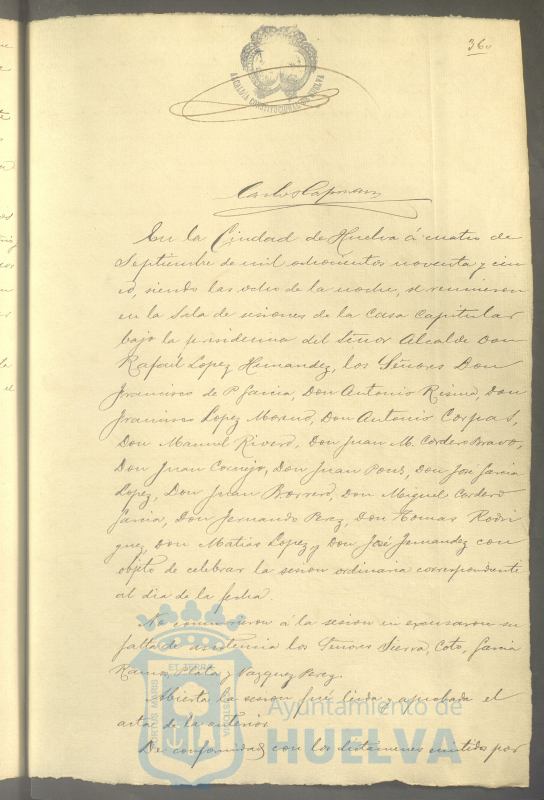 360
ALCALDIA CONSTITUCIONAL DE HUELVA
En la Ciudad de Huelva á cuatro de
Septiembre de mil ochocientos noventa y cin
co, siendo las ocho de la noche, se reunieron
en la Sala de sesiones de la Casa Capitular
bajo la presidencia del Señor Alcalde Don
Rafael Lopez Hernandez, los Señores Don
Francisco de P. Garcia, Don Antonio Resina, Don
Francisco Lopez Moreno, Don Antonio Corpas,
Don Manuel Rivero, Don Juan M. Cordero Bravo,
Don Juan Cornejo, Don Juan Pons, Don José Garcia
Lopez, Don Juan Borrero, Don Miguel Cordero
Garcia, Don Fernando Perez, Don Tomas Rodri
guez, Don Matias Lopez y Don José Fernandez con
objeto de celebrar la sesion ordinaria correspondiente
al dia de la fecha.
No concurrieron á la sesion ni excusaron su
falta de asistencia los Señores Sierra, Coto, Garcia
Ramos, Plata y Vazquez Perez.
Abierta la sesion fué leida y aprobada el
acta de la anterior.
De conformidad con los dictamenes emitidos por
PORTUS MARIS ET TERRÆ CUSTODIA
Ayuntamiento de
HUELVA